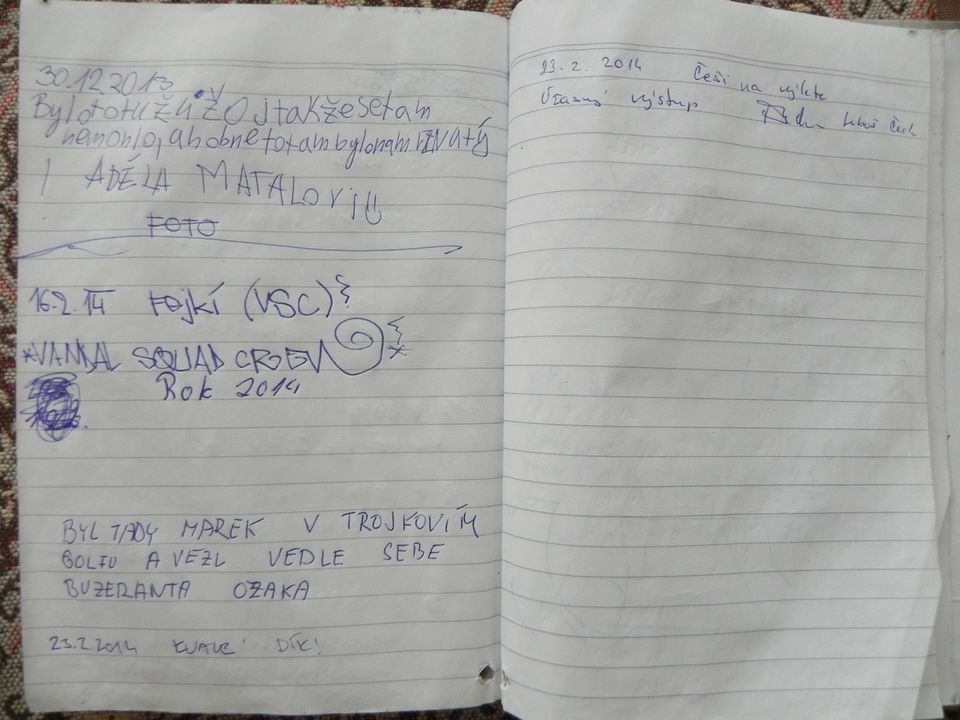 30.12.2013
Bylo to tu žůžo jtakže se tam
nemohlo, ahobne to tam bylo nam
| ADÉLA MATALOVI
FOTO
16.2.14 (VSC)
*VANDAL SQUAD CREW *
Rok 2014
BYL TADY MAREK V TROJKOVÍM
GOLFU A VEZL VEDLE SEBE
BUZERANTA OZAKA
23.2.2014 DÍK!
23.2. 2014 Češi na výlete
Úžasný výstup